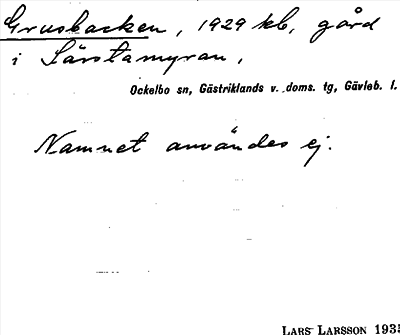 Grusbacken, 1929 kb, gård
i Lärstamyran,
Ockelbo sn, Gästriklands v. doms. tg, Gävleb. l.
Namnet användes ej.
LARS LARSSON 1935